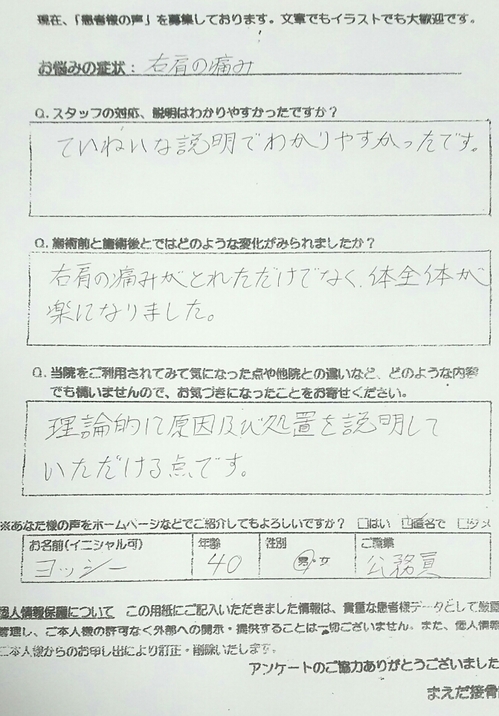 現在、「患者様の声」を募集しております。文章でもイラストでも大歓迎です。
お悩みの症状：右肩の痛み
Q.スタッフの対応、説明はわかりやすかったですか？
ていねいな説明でわかりやすかったです。
Q.施術前と施術後とではどのような変化がみられましたか？
右肩の痛みがとれただけでなく、体全体が
楽になりました。
Q.当院をご利用されてみて気になった点や他院との違いなど、どのような内容
でも構いませんので、お気づきになったことをお寄せください。
理論的に原因及び処置を説明して
いただける点です。
※あなた様の声をホームページなどでご紹介してもよろしいですか？ □はい ☑匿名で □ダメ
お名前(イニシャル可) 年齢 性別 ご職業
ヨッシー 40 男・女 公務員
個人情報保護について この用紙にご記入いただきました情報は、貴重な患者様データとして厳重
管理し、ご本人様の許可なく外部への開示・提供することは一切ございません。また、個人情報
ご本人様からのお申し出により訂正・削除いたします。
アンケートのご協力ありがとうございました
まえだ接骨